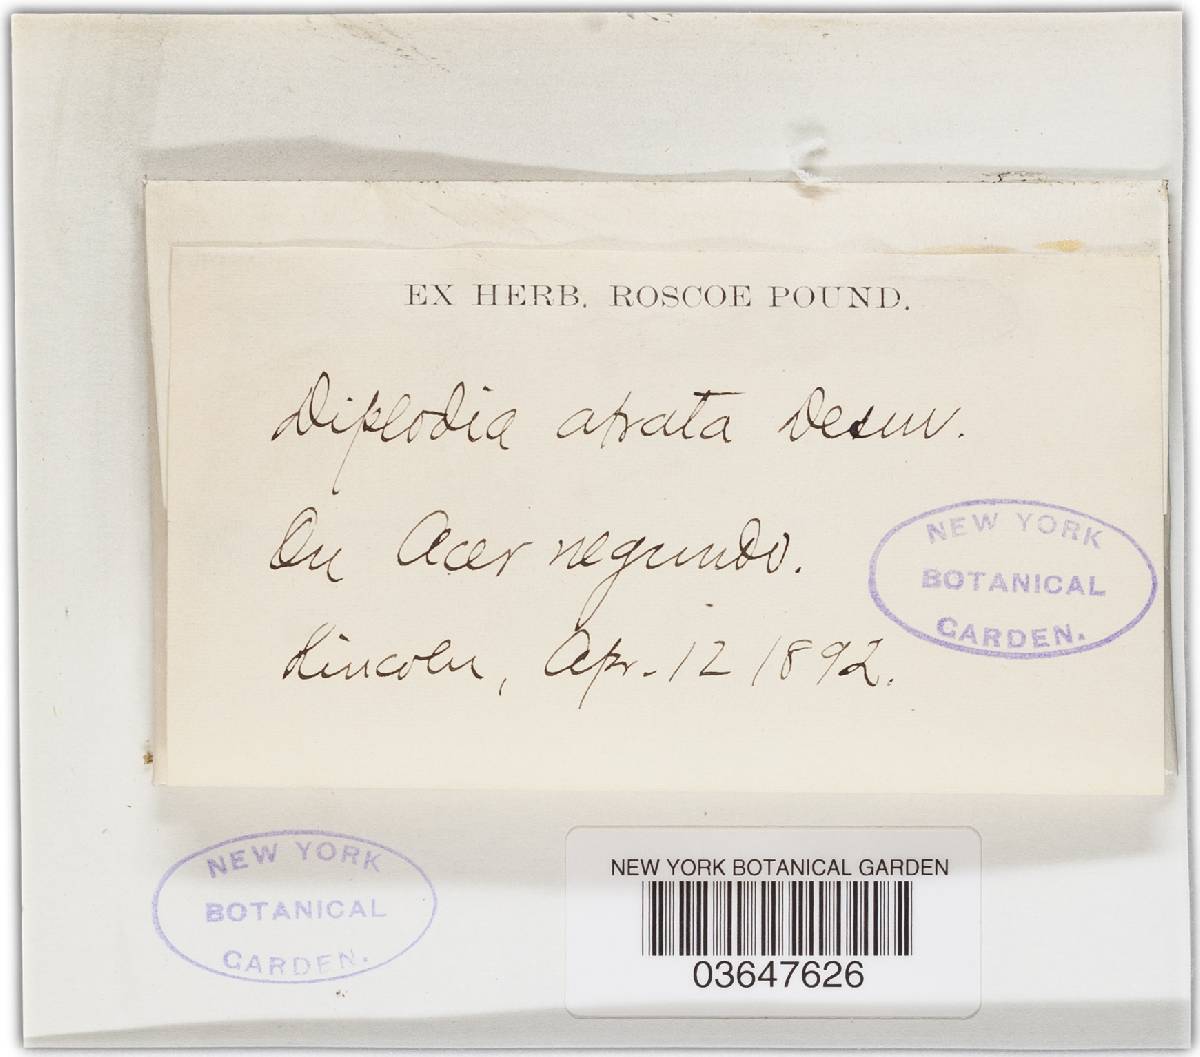 EX HERB. ROSCOE POUND.
Diplodia atrata Desm.
On Acer negundo.
Lincoln, Apr. 12 1892.
NEW YORK
BOTANICAL
GARDEN.
NEW YORK
BOTANICAL
GARDEN.
NEW YORK BOTANICAL GARDEN
03647626